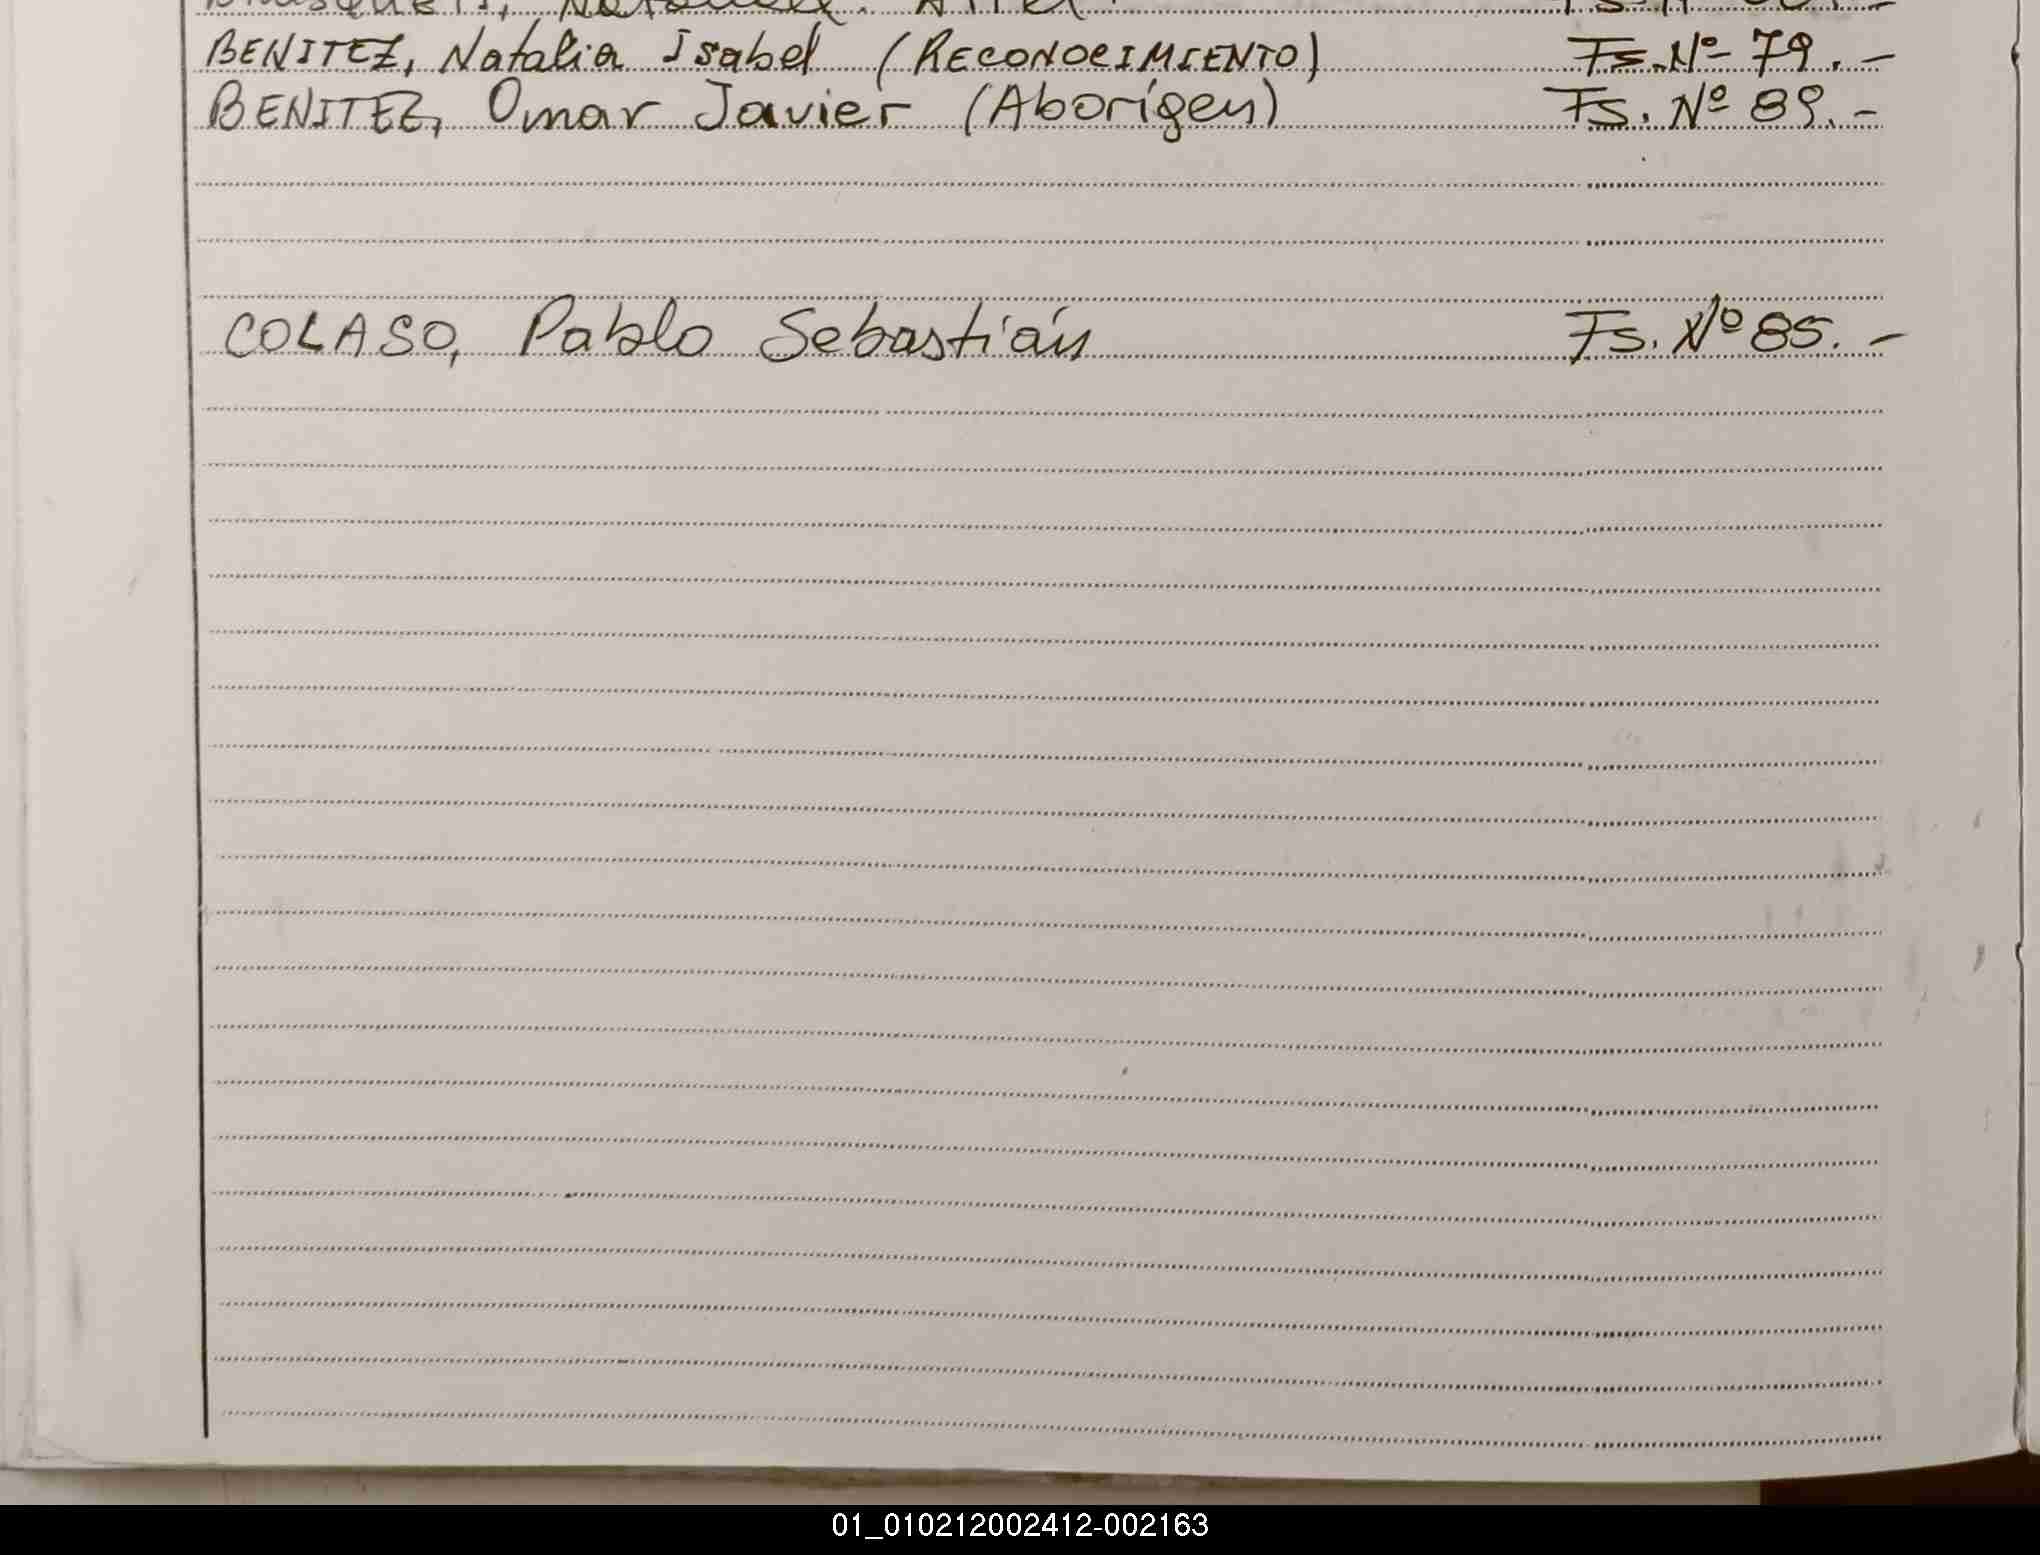 BENITEZ, Natalia Isabel (RECONOCIMIENTO) Fs. Nº 79.-
BENITEZ, Omar Javier (Aborígen) Fs. Nº 89.-
COLASO, Pablo Sebastián Fs. Nº 85.-
01_010212002412-002163